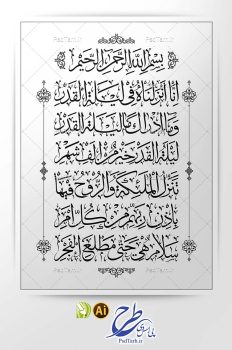 بِسْمِ اللَّهِ الرَّحْمَنِ الرَّحِيمِ
إِنَّا أَنْزَلْنَاهُ فِي لَيْلَةِ الْقَدْرِ
وَمَا أَدْرَاكَ مَا لَيْلَةُ الْقَدْرِ
لَيْلَةُ الْقَدْرِ خَيْرٌ مِنْ أَلْفِ شَهْرٍ
تَنَزَّلُ الْمَلَائِكَةُ وَالرُّوحُ فِيهَا
بِإِذْنِ رَبِّهِمْ مِنْ كُلِّ أَمْرٍ
سَلَامٌ هِيَ حَتَّى مَطْلَعِ الْفَجْرِ
Ai
طرح
PsdTarh.ir